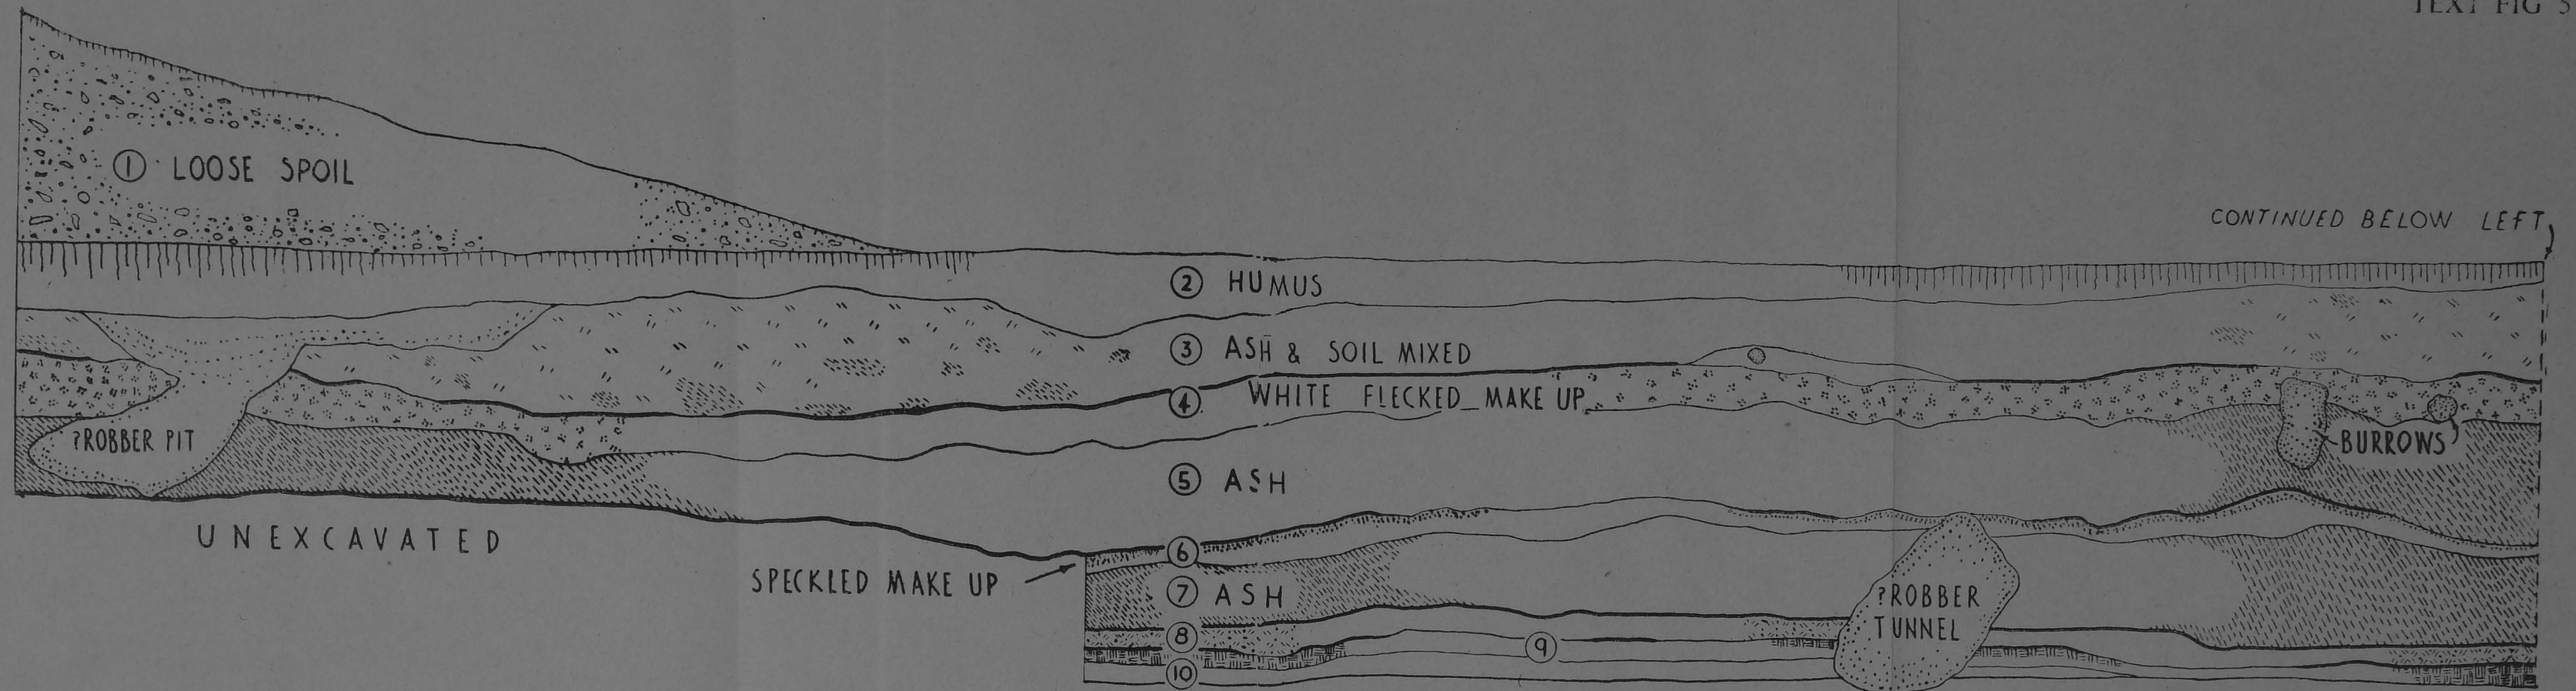 TEXT FIG 5
① LOOSE SPOIL
CONTINUED BELOW LEFT
② HUMUS
③ ASH & SOIL MIXED
④ WHITE FLECKED MAKE UP
?ROBBER PIT
BURROWS
⑤ ASH
UNEXCAVATED
⑥
SPECKLED MAKE UP
⑦ ASH
?ROBBER
TUNNEL
⑧
⑨
⑩